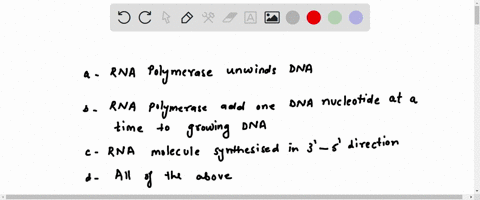 a- RNA Polymerase unwinds DNA
b- RNA Polymerase add one DNA nucleotide at a
time to growing DNA
c- RNA molecule synthesised in 3'-5' direction
d- All of the above